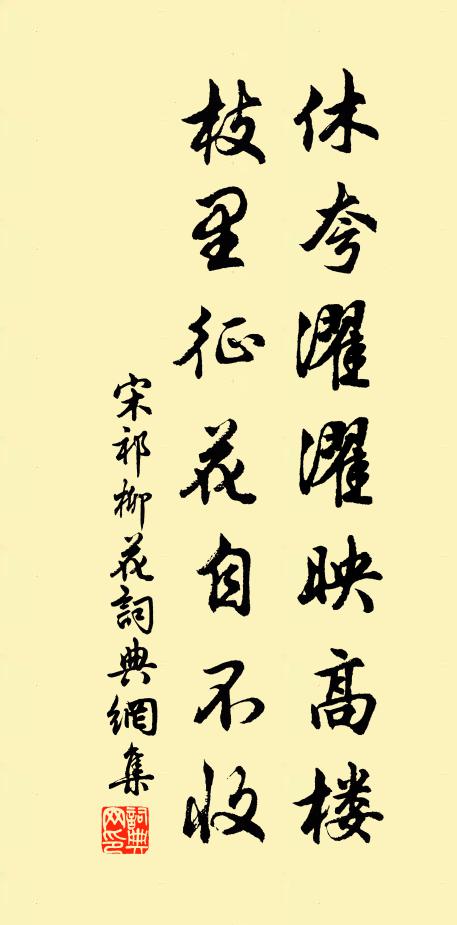 休夸濯濯映高楼
枝里征花自不收
宋祁柳花詞典網集
詞典網印